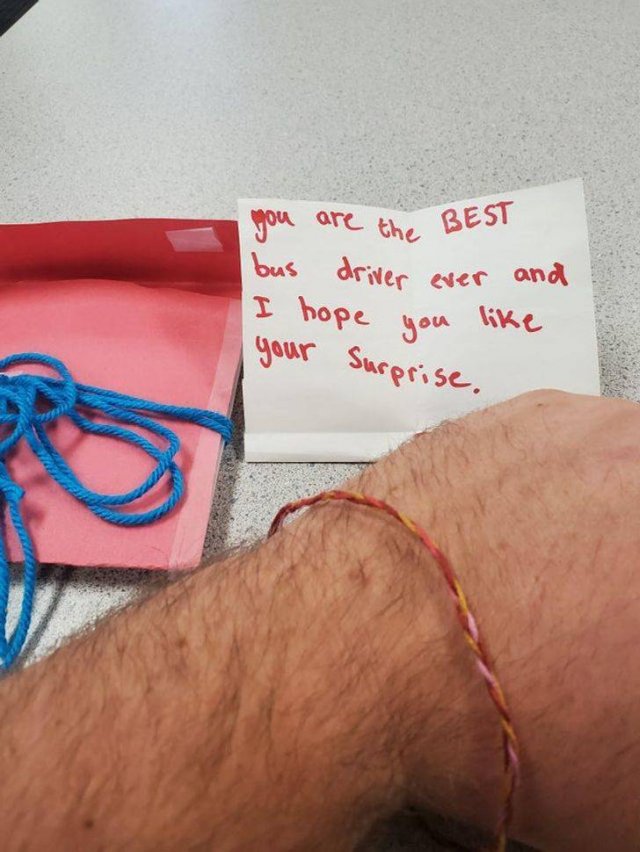 you are the BEST
bus driver ever and
I hope you like
your Surprise.